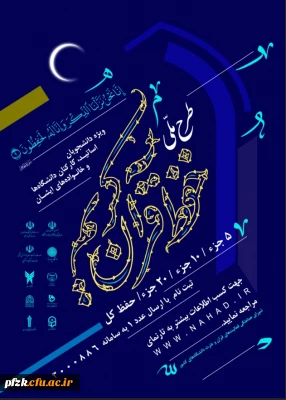 إِنَّا نَحْنُ نَزَّلْنَا الذِّكْرَ وَإِنَّا لَهُ لَحَافِظُونَ
طرح ملی
حفظ قرآن کریم
ویژه دانشجویان
اساتید، کارکنان دانشگاه‌ها
و خانواده‌های ایشان
۵ جزء / ۱۰ جزء / ۲۰ جزء / حفظ کل
ثبت نام با ارسال عدد ۱ به سامانه ۲۰۰۰۸۸۶
جهت کسب اطلاعات بیشتر به تارنمای
WWW.NAHAD.IR
مراجعه نمایید.
pfzk.cfu.ac.ir